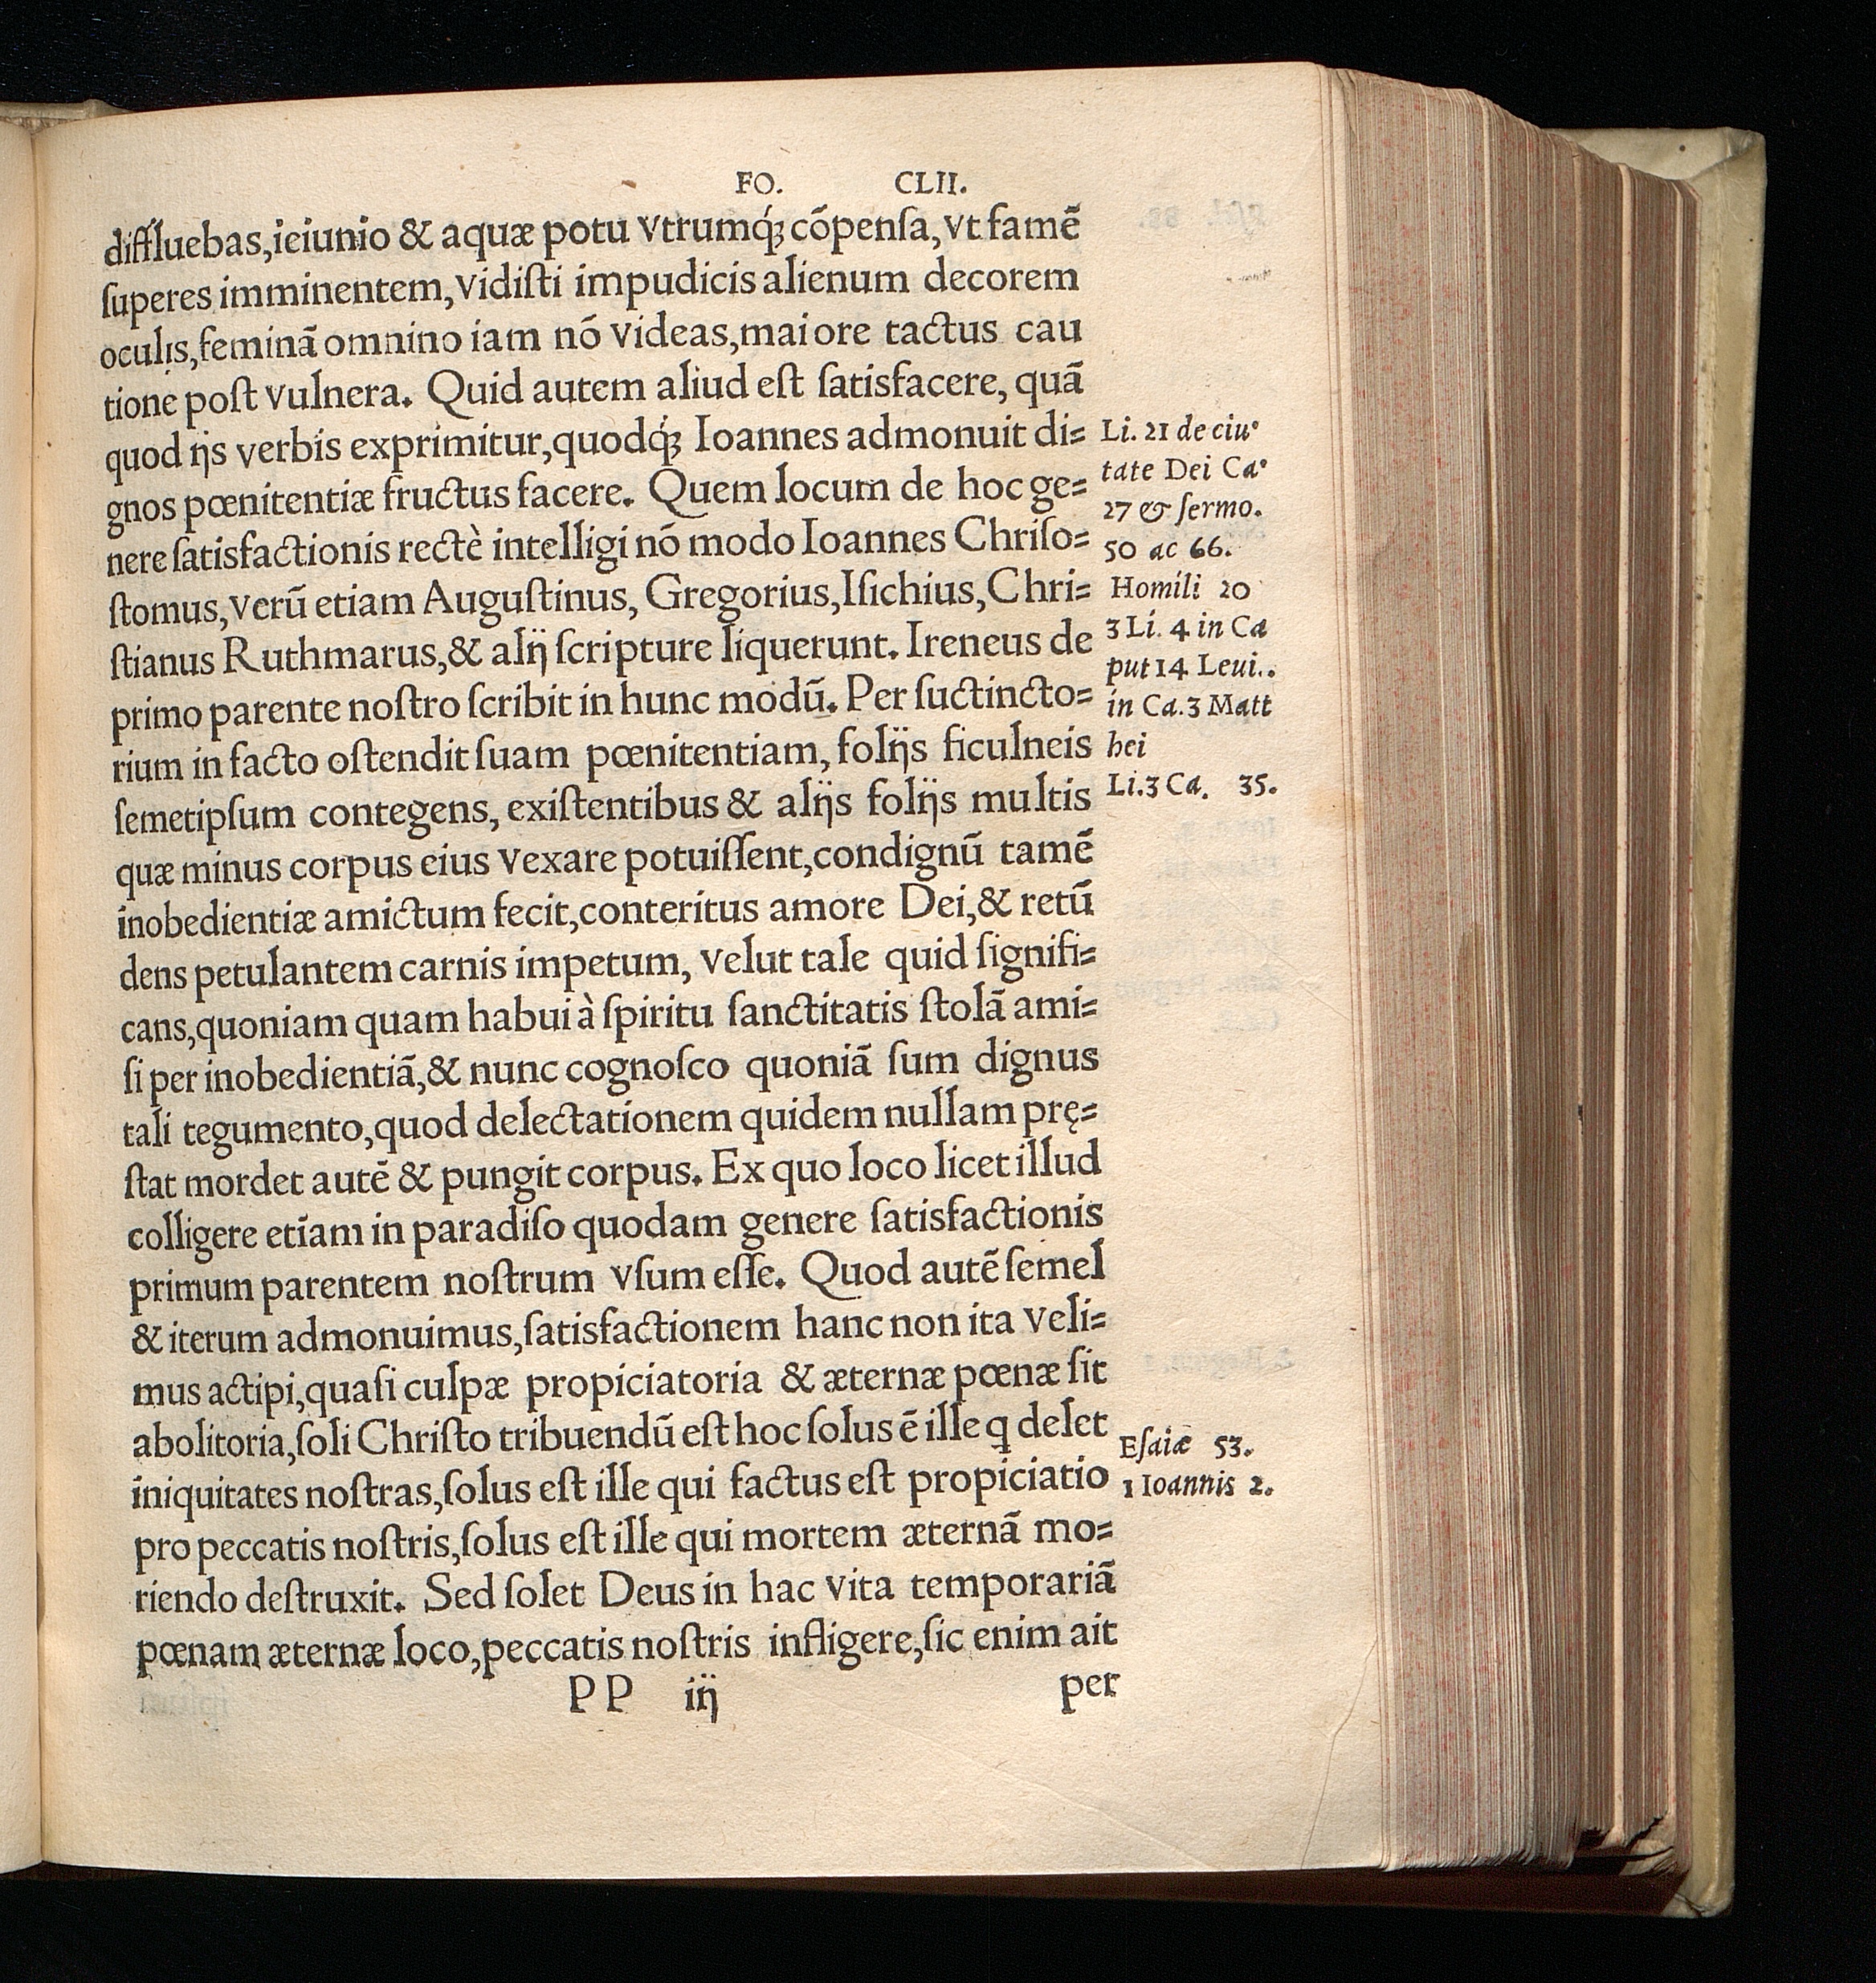 FO. CLII.
diffluebas,ieiunio & aquæ potu vtrumq́ꝫ cõpenſa,vt famẽ
ſuperes imminentem,vidiſti impudicis alienum decorem
oculis,feminã omnino iam nõ videas,maiore tactus cau
tione poſt vulnera. Quid autem aliud eſt ſatisfacere, quã
quod ijs verbis exprimitur,quodq́ꝫ Ioannes admonuit di=
gnos pœnitentiæ fructus facere. Quem locum de hoc ge=
nere ſatisfactionis rectè intelligi nõ modo Ioannes Chriſo=
ſtomus,verũ etiam Auguſtinus, Gregorius,Iſichius,Chri=
ſtianus Ruthmarus,& alij ſcripture liquerunt. Ireneus de
primo parente noſtro ſcribit in hunc modũ. Per ſuctincto=
rium in facto oſtendit ſuam pœnitentiam, folijs ficulneis
ſemetipſum contegens, exiſtentibus & alijs folijs multis
quæ minus corpus eius vexare potuiſſent,condignũ tamẽ
inobedientiæ amictum fecit,conteritus amore Dei,& retũ
dens petulantem carnis impetum, velut tale quid ſignifi=
cans,quoniam quam habui à ſpiritu ſanctitatis ſtolã ami=
ſi per inobedientiã,& nunc cognoſco quoniã ſum dignus
tali tegumento,quod delectationem quidem nullam prę=
ſtat mordet autẽ & pungit corpus. Ex quo loco licet illud
colligere etiam in paradiſo quodam genere ſatisfactionis
primum parentem noſtrum vſum eſſe. Quod autẽ ſemel
& iterum admonuimus,ſatisfactionem hanc non ita veli=
mus actipi,quaſi culpæ propiciatoria & æternæ pœnæ ſit
abolitoria,ſoli Chriſto tribuendũ eſt hoc ſolus ẽ ille q delet
iniquitates noſtras,ſolus eſt ille qui factus eſt propiciatio
pro peccatis noſtris,ſolus eſt ille qui mortem æternã mo=
riendo deſtruxit. Sed ſolet Deus in hac vita temporariã
pœnam æternæ loco,peccatis noſtris infligere,ſic enim ait
PP iij per
Li. 21 de ciu
tate Dei Ca
27 & ſermo.
50 ac 66.
Homili 20
3 Li. 4 in Ca
put 14 Leui..
in Ca.3 Matt
hei
Li.3 Ca. 35.
Eſaiæ 53.
1 Ioannis 2.